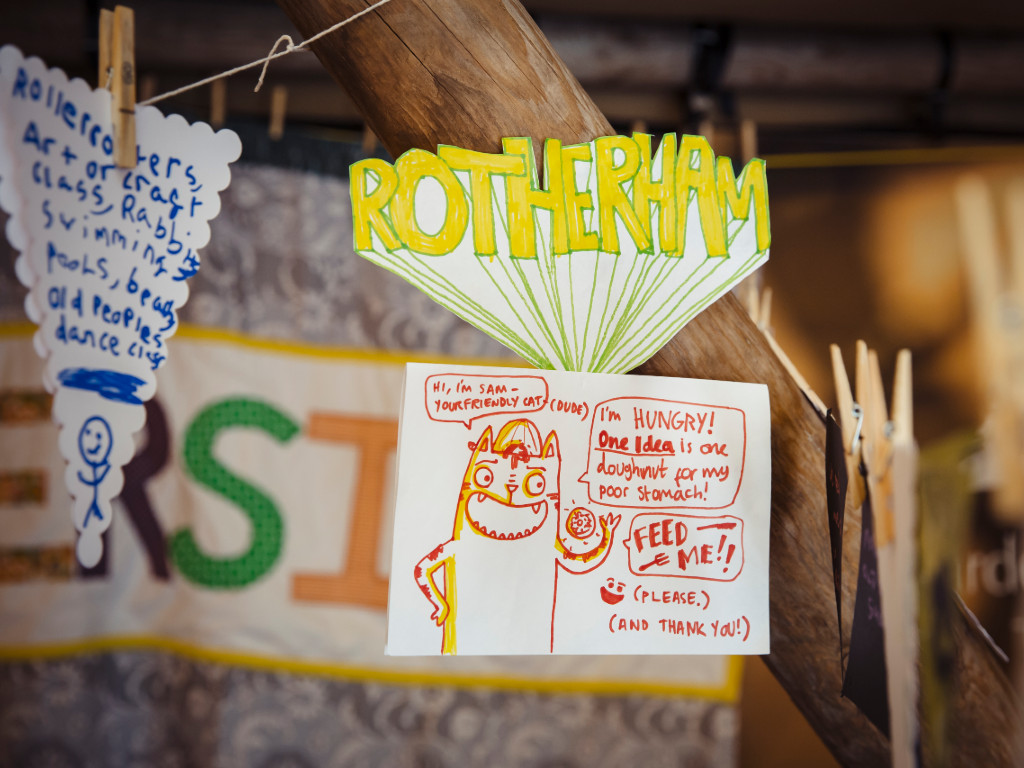 Rollercoasters,
Art or craft
class, Rabbits
swimming
pools, beach
Old Peoples
dance class
ERSI
ROTHERHAM
HI, I'M SAM -
YOUR FRIENDLY CAT. (DUDE)
I'm HUNGRY!
One Idea is one
doughnut for my
poor stomach!
FEED
ME!!
(PLEASE.)
(AND THANK YOU!)